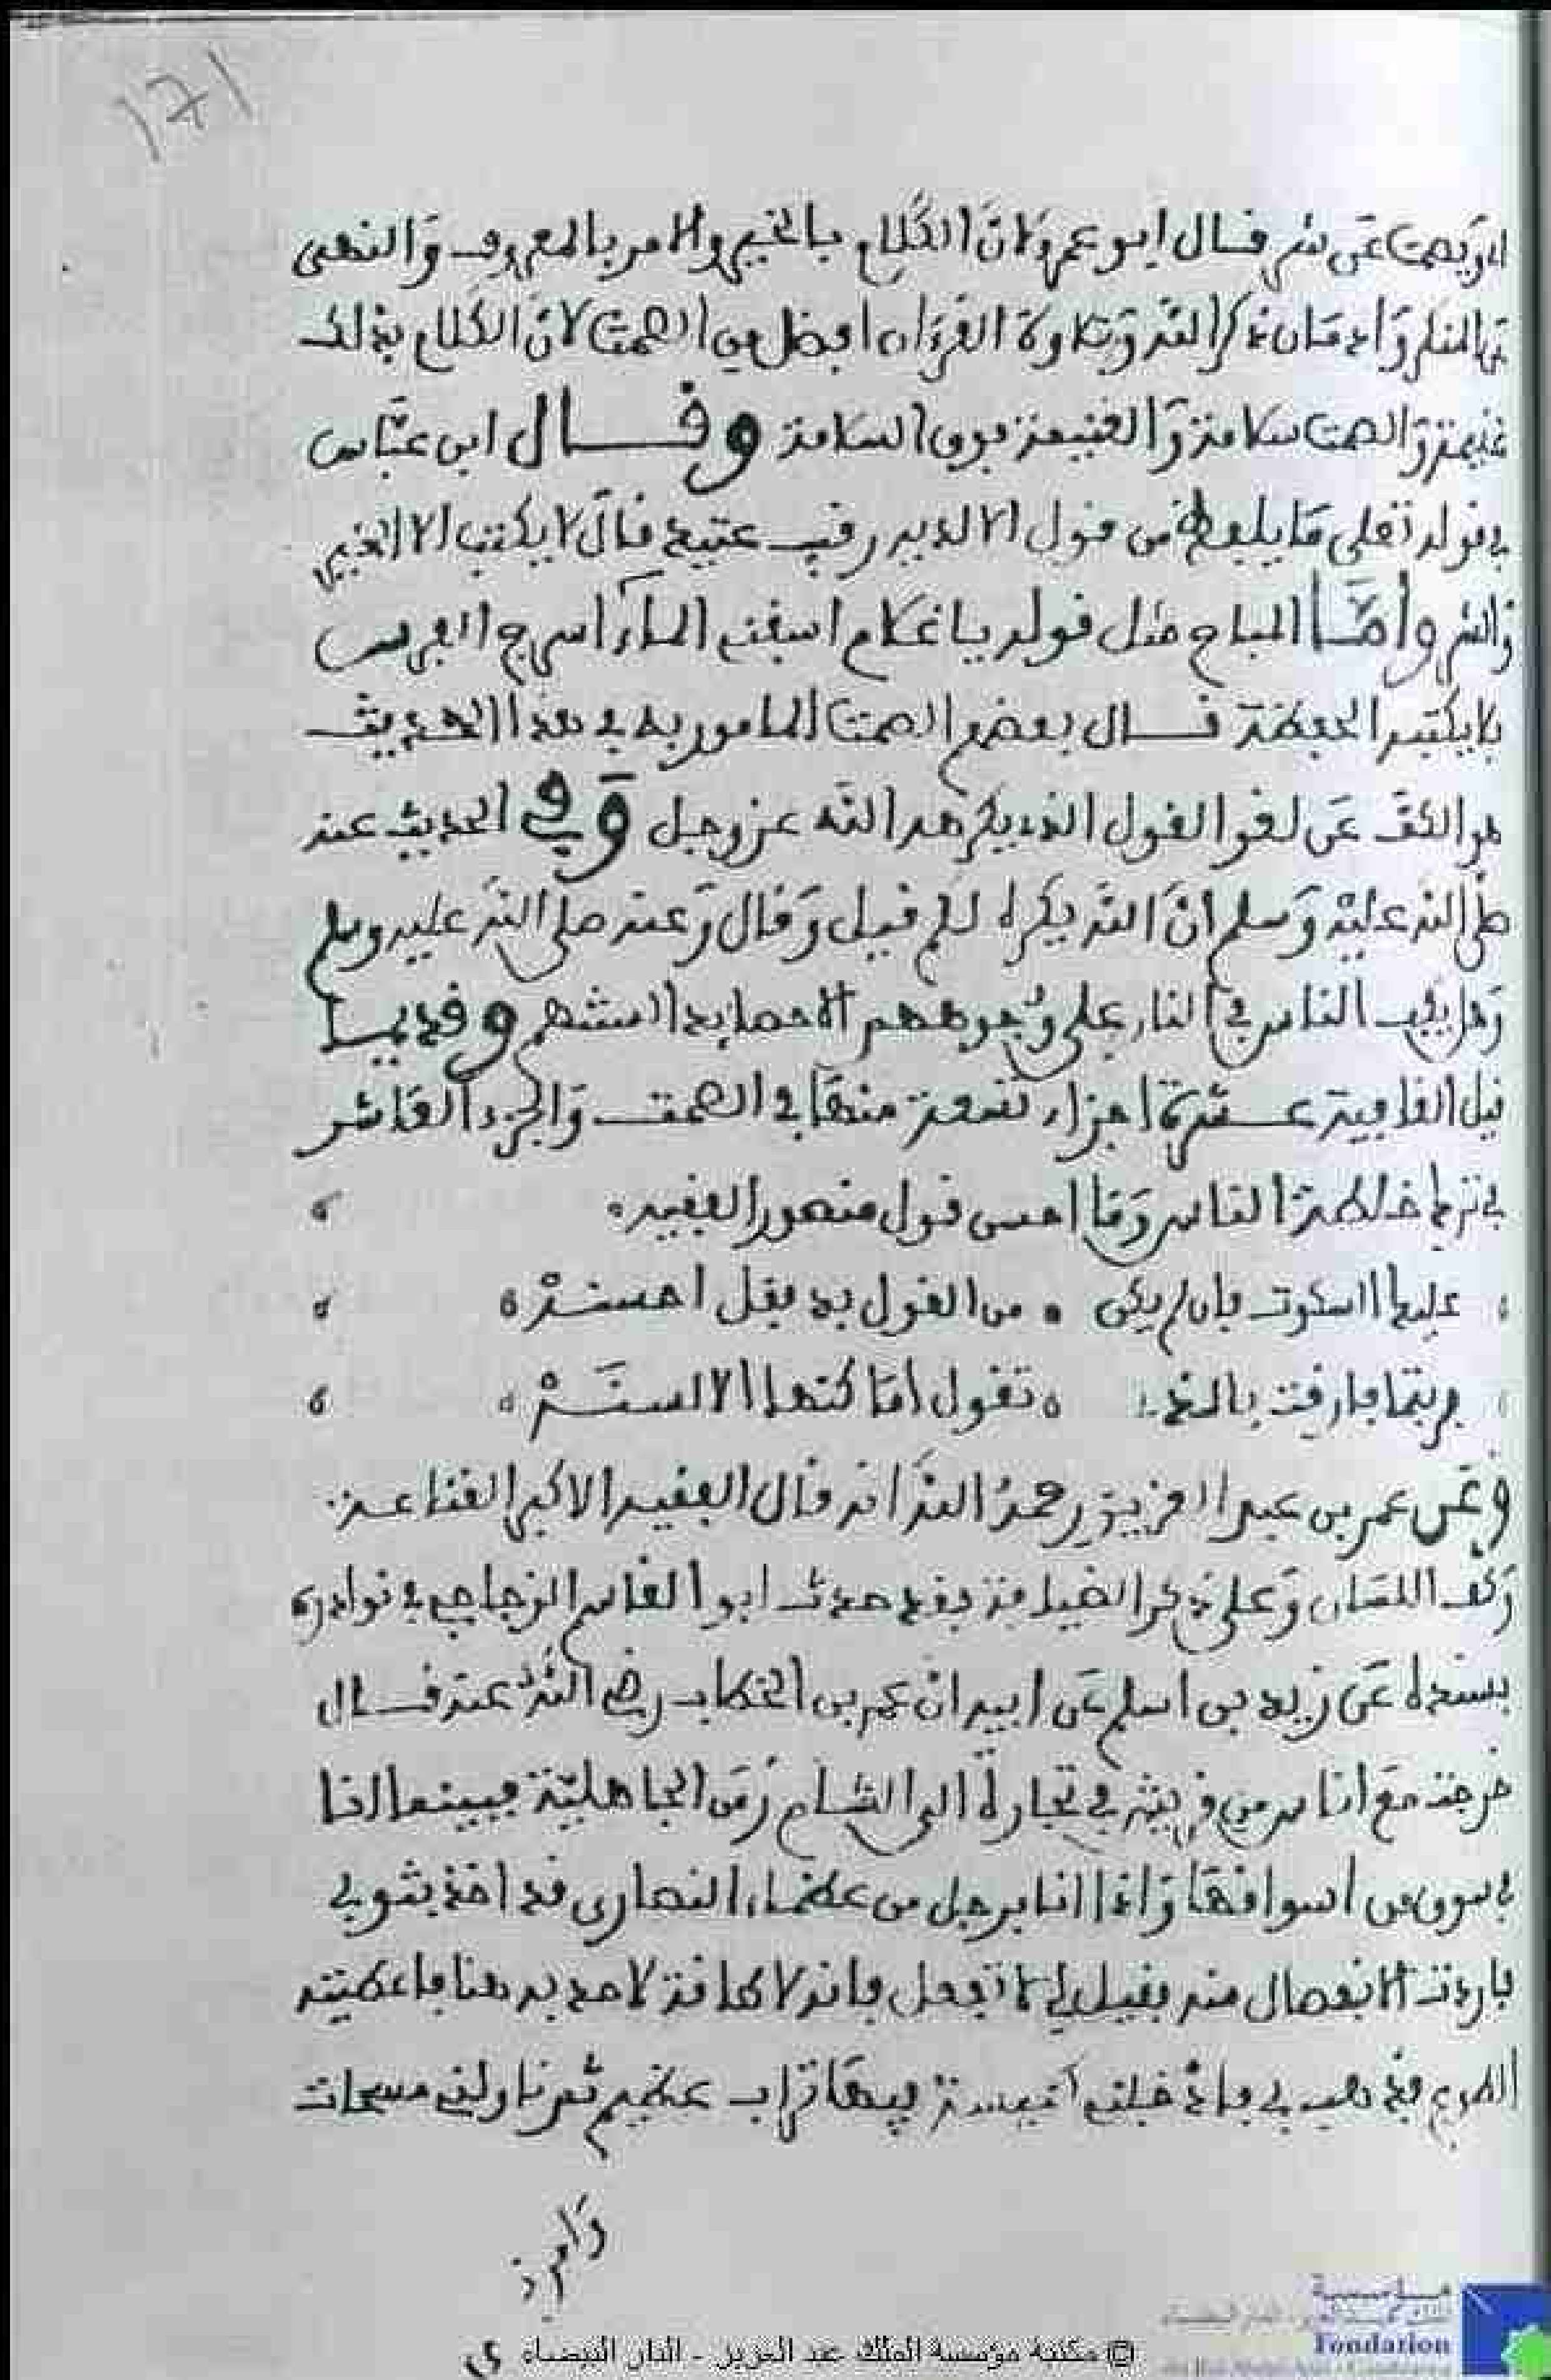 171
او يصمت عن شر فال ابو عمر ولان الكلام بالخير والامر بالمعروف والنهى
عن المنكر وادمان ذكر الله وتلاوة القرءان افضل من الصمت لان الكلام بذلك
غنيمة والصمت سلامة والغنيمة فوق السلامة وقال ابن عباس
في قوله تعلى ما يلفظ من قول الا لديه رقيب عتيد قال لا يكتب الا الخير
والشر واما المباح مثل قوله يا غلام اسقني الماء اسرج الفرس
فلا يكتبه الحفظة قال بعضهم الصمت المامور به في هذا الحديث
هو الكف عن لغو القول الذي يكرهه الله عز وجل وفي الحديث عنه
صلى الله عليه وسلم ان الله يكره لكم قيل وقال وعنه صلى الله عليه وسلم
وهل يكب الناس في النار على وجوههم الا حصايد السنتهم وقديما
قيل العافية عشرة اجزاء تسعة منها في الصمت والجزء العاشر
في ترك خلطة الناس وما احسن قول منصور الفقيه
عليك السكوت فان لم يكن من القول بد فقل احسنه
فربتما فارقت بالذي تقول اماكنها الالسنه
وعن عمر بن عبد العزيز رحمه الله انه قال الفقه الاكبر القناعة
وكف اللسان وعلى ذكر الضيافة فقد حدث ابو القاسم الزجاجي في نوادره
بسنده عن زيد بن اسلم عن ابيه ان عمر بن الخطاب رضي الله عنه قال
خرجت مع اناس من قريش في تجارة الى الشام زمن الجاهلية فبينما انا
في سوق من اسواقها واذا انا برجل من عظماء النصارى قد اخذ بثوبي
فاردت الانفصال منه فقيل لي لا تفعل فانه لا طاقة لاحد به هنا فاعطيته
الطوع فذهب بي فادخلني كنيسة فيها تراب عظيم ثم ناولني مسحات
© مكتبة مؤسسة الملك عبد العزيز - الدار البيضاء
مؤسسة
Fondation